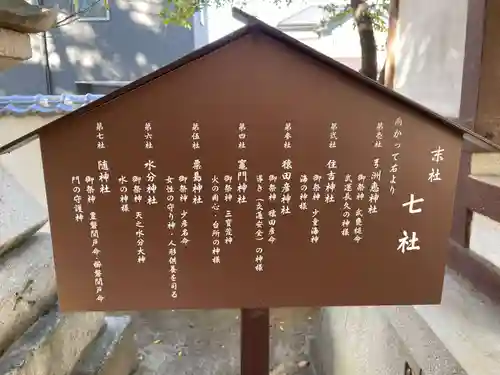 末社 七社
向かって右より
第壱社 弓洲恵神社
御祭神 武甕槌命
武運長久の神様
第弐社 住吉神社
御祭神 少童海神
海の神様
第参社 猿田彦神社
御祭神 猿田彦命
導き(交通安全)の神様
第四社 竈門神社
御祭神 三宝荒神
火の用心・台所の神様
第伍社 粟島神社
御祭神 少彦名命
女性の守り神・人形供養を司る
第六社 水分神社
御祭神 天之水分大神
水の神様
第七社 随神社
御祭神 豊磐間戸命 櫛磐間戸命
門の守護神